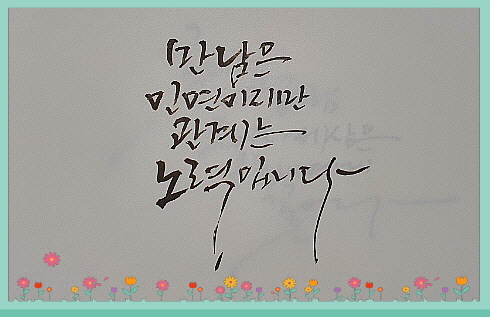 만남은
인연이지만
관계는
노력입니다